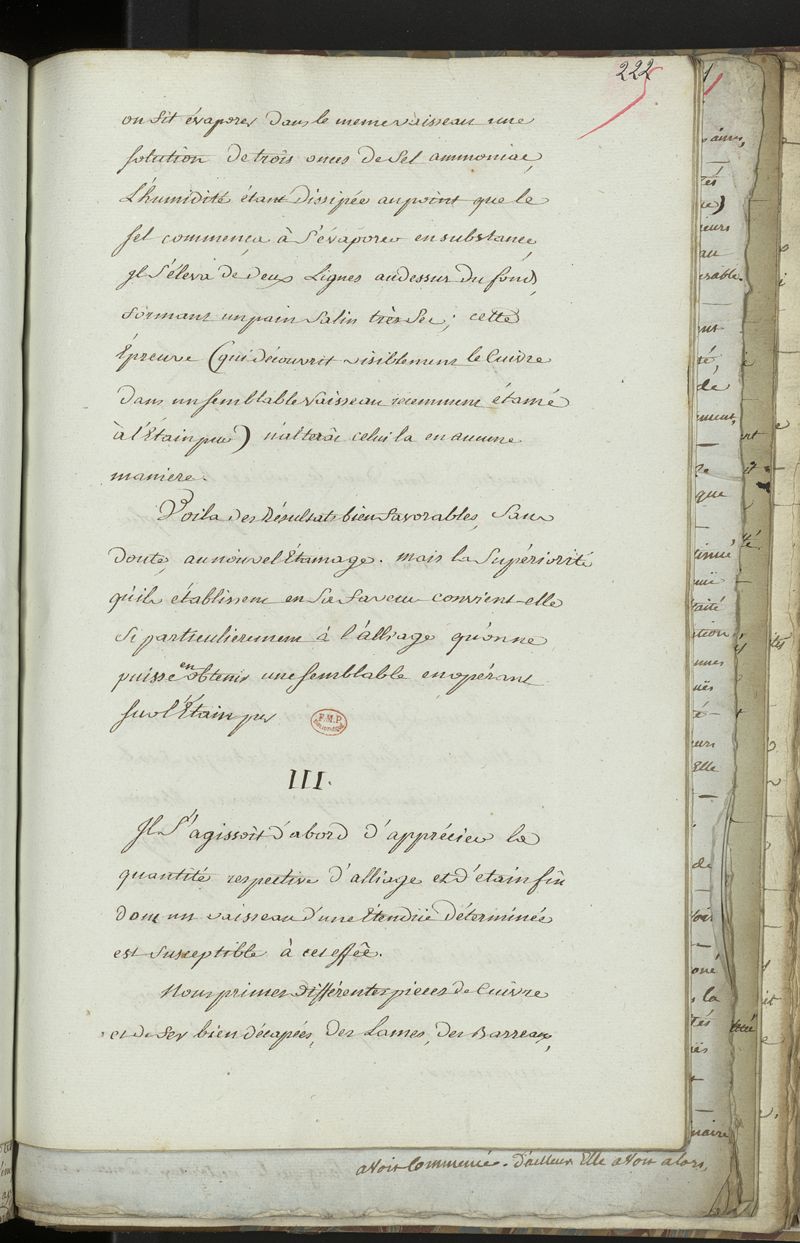 222
on fit évaporer dans le meme vaisseau une
solution de trois onces de Sel ammoniac,
L'humidité étant dissipée au point que le
sel commença à S'évaporer en substance,
Jl S'éleva de deux Lignes audessus du fond,
formant un pain Salin très Sec; cette
Epreuve (qui découvrit visiblement le Cuivre
dans un semblable vaisseau récemment étamé
à l'Etain pur) n'altera celui la en aucune
maniere.
Voila des Résultats bien favorables, Sans
doute, au nouvel Etamage. mais la Supériorité
qu'ils établissent en Sa faveur convient-elle
Si particulierement à l'alliage qu'on ne
puisse en obtenir une semblable en opérant
sur l'Etain pur
F.M.P.
III.
Jl S'agissoit d'abord d'apprécier la
quantité respective d'alliage et d'étain fin
dont un vaisseau d'une Etendüe déterminée
est susceptible à cet effet.
Nous primes différentes pieces de Cuivre
et de fer bien décapées, des Lames, des Barreaux,
avoit Commencé. D'ailleurs Elle avoit alors,